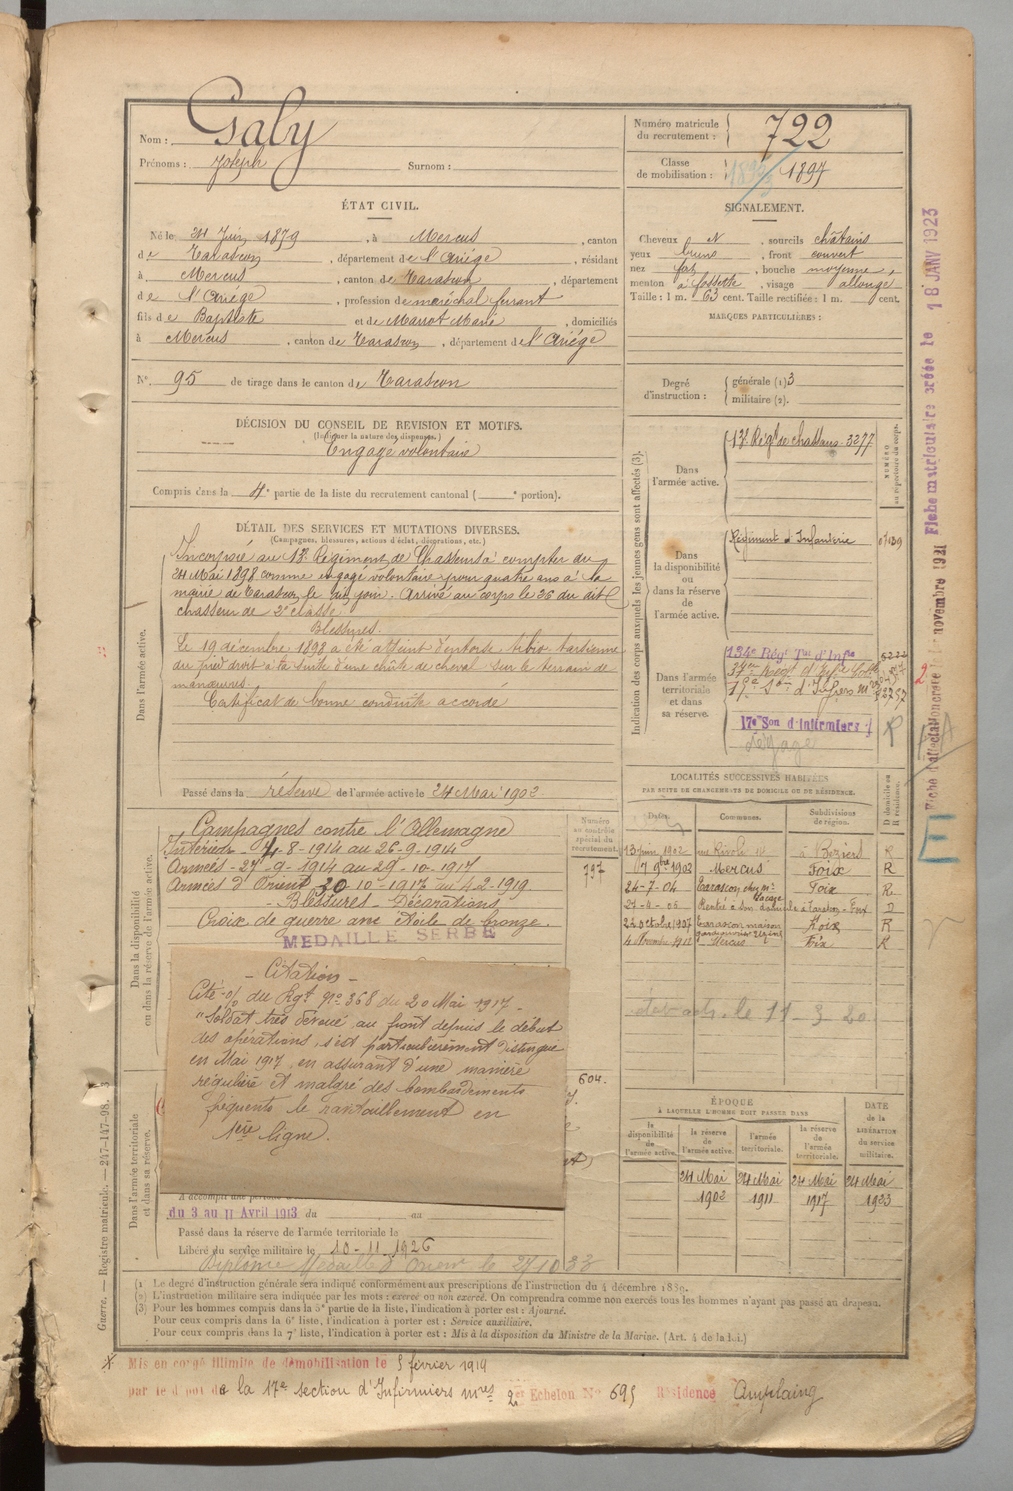 Nom : Galy
Prénoms : Joseph Surnom :
Numéro matricule du recrutement : 722
Classe de mobilisation : 1897
ÉTAT CIVIL.
Né le 24 Juin 1879, à Mercus, canton
de Tarascon, département de l'Ariége, résidant
à Mercus, canton de Tarascon, département
de l'Ariége, profession de maréchal ferrant
fils de Baptiste et de Marrot Marie, domiciliés
à Mercus, canton de Tarascon, département de l'Ariége
N° 95 de tirage dans le canton de Tarascon
SIGNALEMENT.
Cheveux N, sourcils châtains
yeux bruns, front couvert
nez fort, bouche moyenne,
menton à fossette, visage allongé
Taille : 1 m. 63 cent. Taille rectifiée : 1 m. cent.
MARQUES PARTICULIÈRES :
Degré d'instruction : générale (1) 3
militaire (2).
DÉCISION DU CONSEIL DE REVISION ET MOTIFS.
(Indiquer la nature des dispenses.)
Engagé volontaire
Compris dans la 4e partie de la liste du recrutement cantonal ( e portion).
DÉTAIL DES SERVICES ET MUTATIONS DIVERSES.
(Campagnes, blessures, actions d'éclat, décorations, etc.)
Dans l'armée active.
Incorporé au 13e Régiment de Chasseurs à compter du
24 Mai 1898 comme engagé volontaire pour quatre ans à la
mairie de Tarascon, le dit jour. Arrivé au corps le 26 du dit
chasseur de 2e classe.
Blessures.
Le 19 décembre 1898 a été atteint d'entorse tibio tarsienne
du pied droit à la suite d'une chûte de cheval sur le terrain de
manœuvres.
Certificat de bonne conduite accordé
Passé dans la réserve de l'armée active le 24 Mai 1902
Indication des corps auxquels les jeunes gens sont affectés (3).
Dans l'armée active.
13e Régt de chasseurs 3277
NUMÉRO au répertoire du corps.
Dans la disponibilité ou dans la réserve de l'armée active.
Régiment d'Infanterie
Dans l'armée territoriale et dans sa réserve.
134e Régt Tal d'Infie
17e Son d'Infirmiers
Dans la disponibilité ou dans la réserve de l'armée active.
Campagnes contre l'Allemagne
Intérieur - 4-8-1914 au 26-9-1914
Armées - 27-9-1914 au 29-10-1917
Armées d'Orient 30-10-1917 au 4-2-1919
- Blessures - Décorations
Croix de guerre avec étoile de bronze.
MEDAILLE SERBE
Numéro au contrôle spécial du recrutement
797
- Citation -
Cité o/ du Rgt No 368 du 20 Mai 1917 -
"Soldat très dévoué, au front depuis le début
des opérations, s'est particulièrement distingué
en Mai 1917, en assurant d'une manière
régulière et malgré des bombardements
fréquents, le ravitaillement en
1ère ligne.
604.
Dans l'armée territoriale et dans sa réserve.
A accompli une période d
du 3 au 11 Avril 1913 du au
Passé dans la réserve de l'armée territoriale le
Libéré du service militaire le 10-11-1926
Diplôme Médaille d'Orient le 27.10.33
LOCALITÉS SUCCESSIVES HABITÉES
PAR SUITE DE CHANGEMENTS DE DOMICILE OU DE RÉSIDENCE.
Dates. Communes. Subdivisions de région. D domicile ou R résidence.
13 juin 1902 rue Rivoli 10 à Beziers R
7 9bre 1902 Mercus Foix R
24-7-04 Tarascon Foix R
27-4-06 Rentré à son domicile à Tarascon - Foix D
24 octobre 1907 Tarascon maison Foix R
4 Novembre 1912 Mercus Foix R
le 11-3-20
ÉPOQUE
À LAQUELLE L'HOMME DOIT PASSER DANS
DATE de la LIBÉRATION du service militaire.
la disponibilité de l'armée active. la réserve de l'armée active. l'armée territoriale. la réserve de l'armée territoriale.
24 Mai 1902 24 Mai 1911 24 Mai 1917 24 Mai 1923
(1) Le degré d'instruction générale sera indiqué conformément aux prescriptions de l'instruction du 4 décembre 1889.
(2) L'instruction militaire sera indiquée par les mots : exercé ou non exercé. On comprendra comme non exercés tous les hommes n'ayant pas passé au drapeau.
(3) Pour les hommes compris dans la 5e partie de la liste, l'indication à porter est : Ajourné.
Pour ceux compris dans la 6e liste, l'indication à porter est : Service auxiliaire.
Pour ceux compris dans la 7e liste, l'indication à porter est : Mis à la disposition du Ministre de la Marine. (Art. 4 de la loi.)
Mis en congé illimité de démobilisation le 5 février 1919
par le dépôt de la 17e section d'Infirmiers mres 2e Echelon No 695 Résidence Amplaing
Guerre. — Registre matricule. — 247-147-98.
Fiche matriculaire créée le 18 JANV 1923
Fiche d'affectation créée le novembre 1921